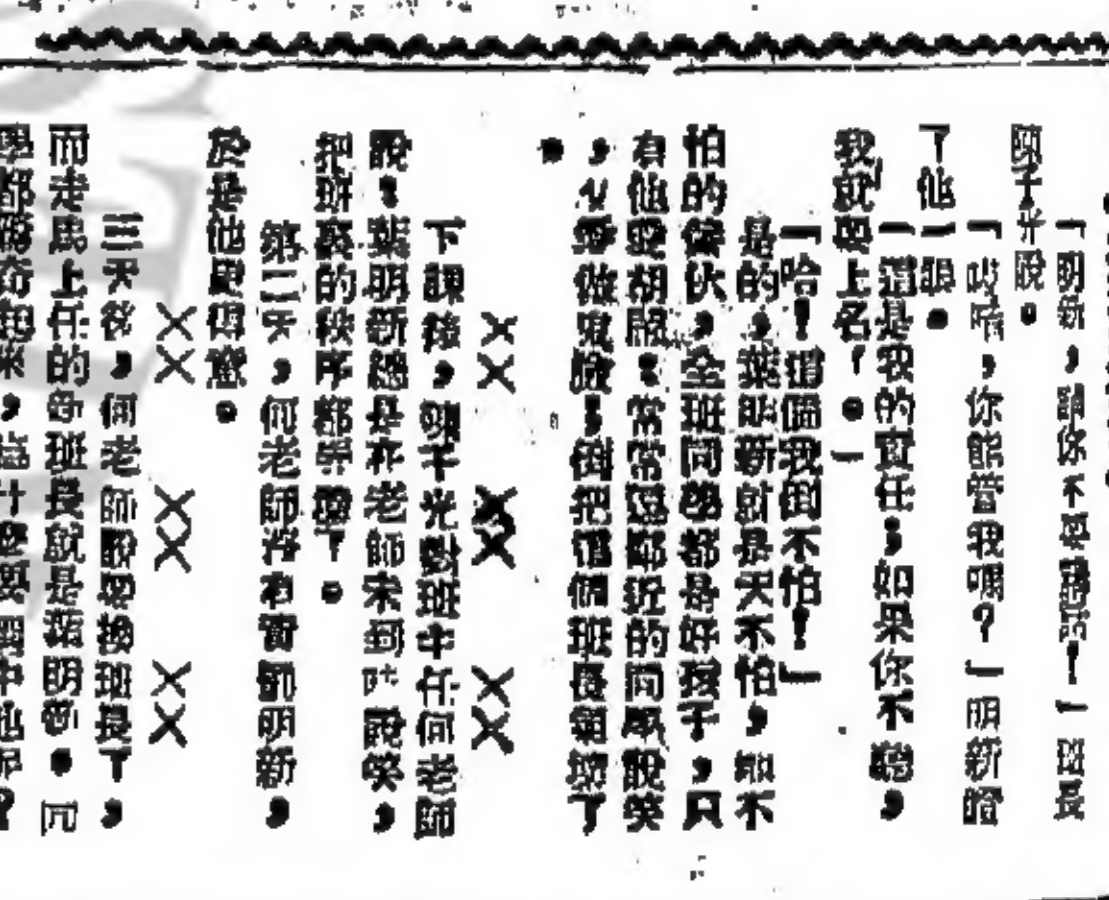 「明新,請你不要講話!」班長
陳子光說。
「哎唷,你能管我嗎?」明新瞪
了他一眼。
「這是我的責任;如果你不聽,
我就要上名!。」
「哈!這個我倒不怕!」
是的,葉明新就是天不怕,地不
怕的傢伙,全班同學都是好孩子,只
有他愛胡鬧:常常逗鄰近的同學說笑
,愛做鬼臉;倒把這個班長氣壞了
。
×× ×× ××
下課後,陳子光對班中任何老師
說:葉明新總是在老師未到時說笑,
把班裏的秩序都弄壞了。
第二天,何老師沒有責罰明新,
於是他更得意。
×× ×× ××
三天後,何老師說要換班長了,
而走馬上任的新班長就是葉明新。同
學都驚奇起來,為什麼要選中他呢?